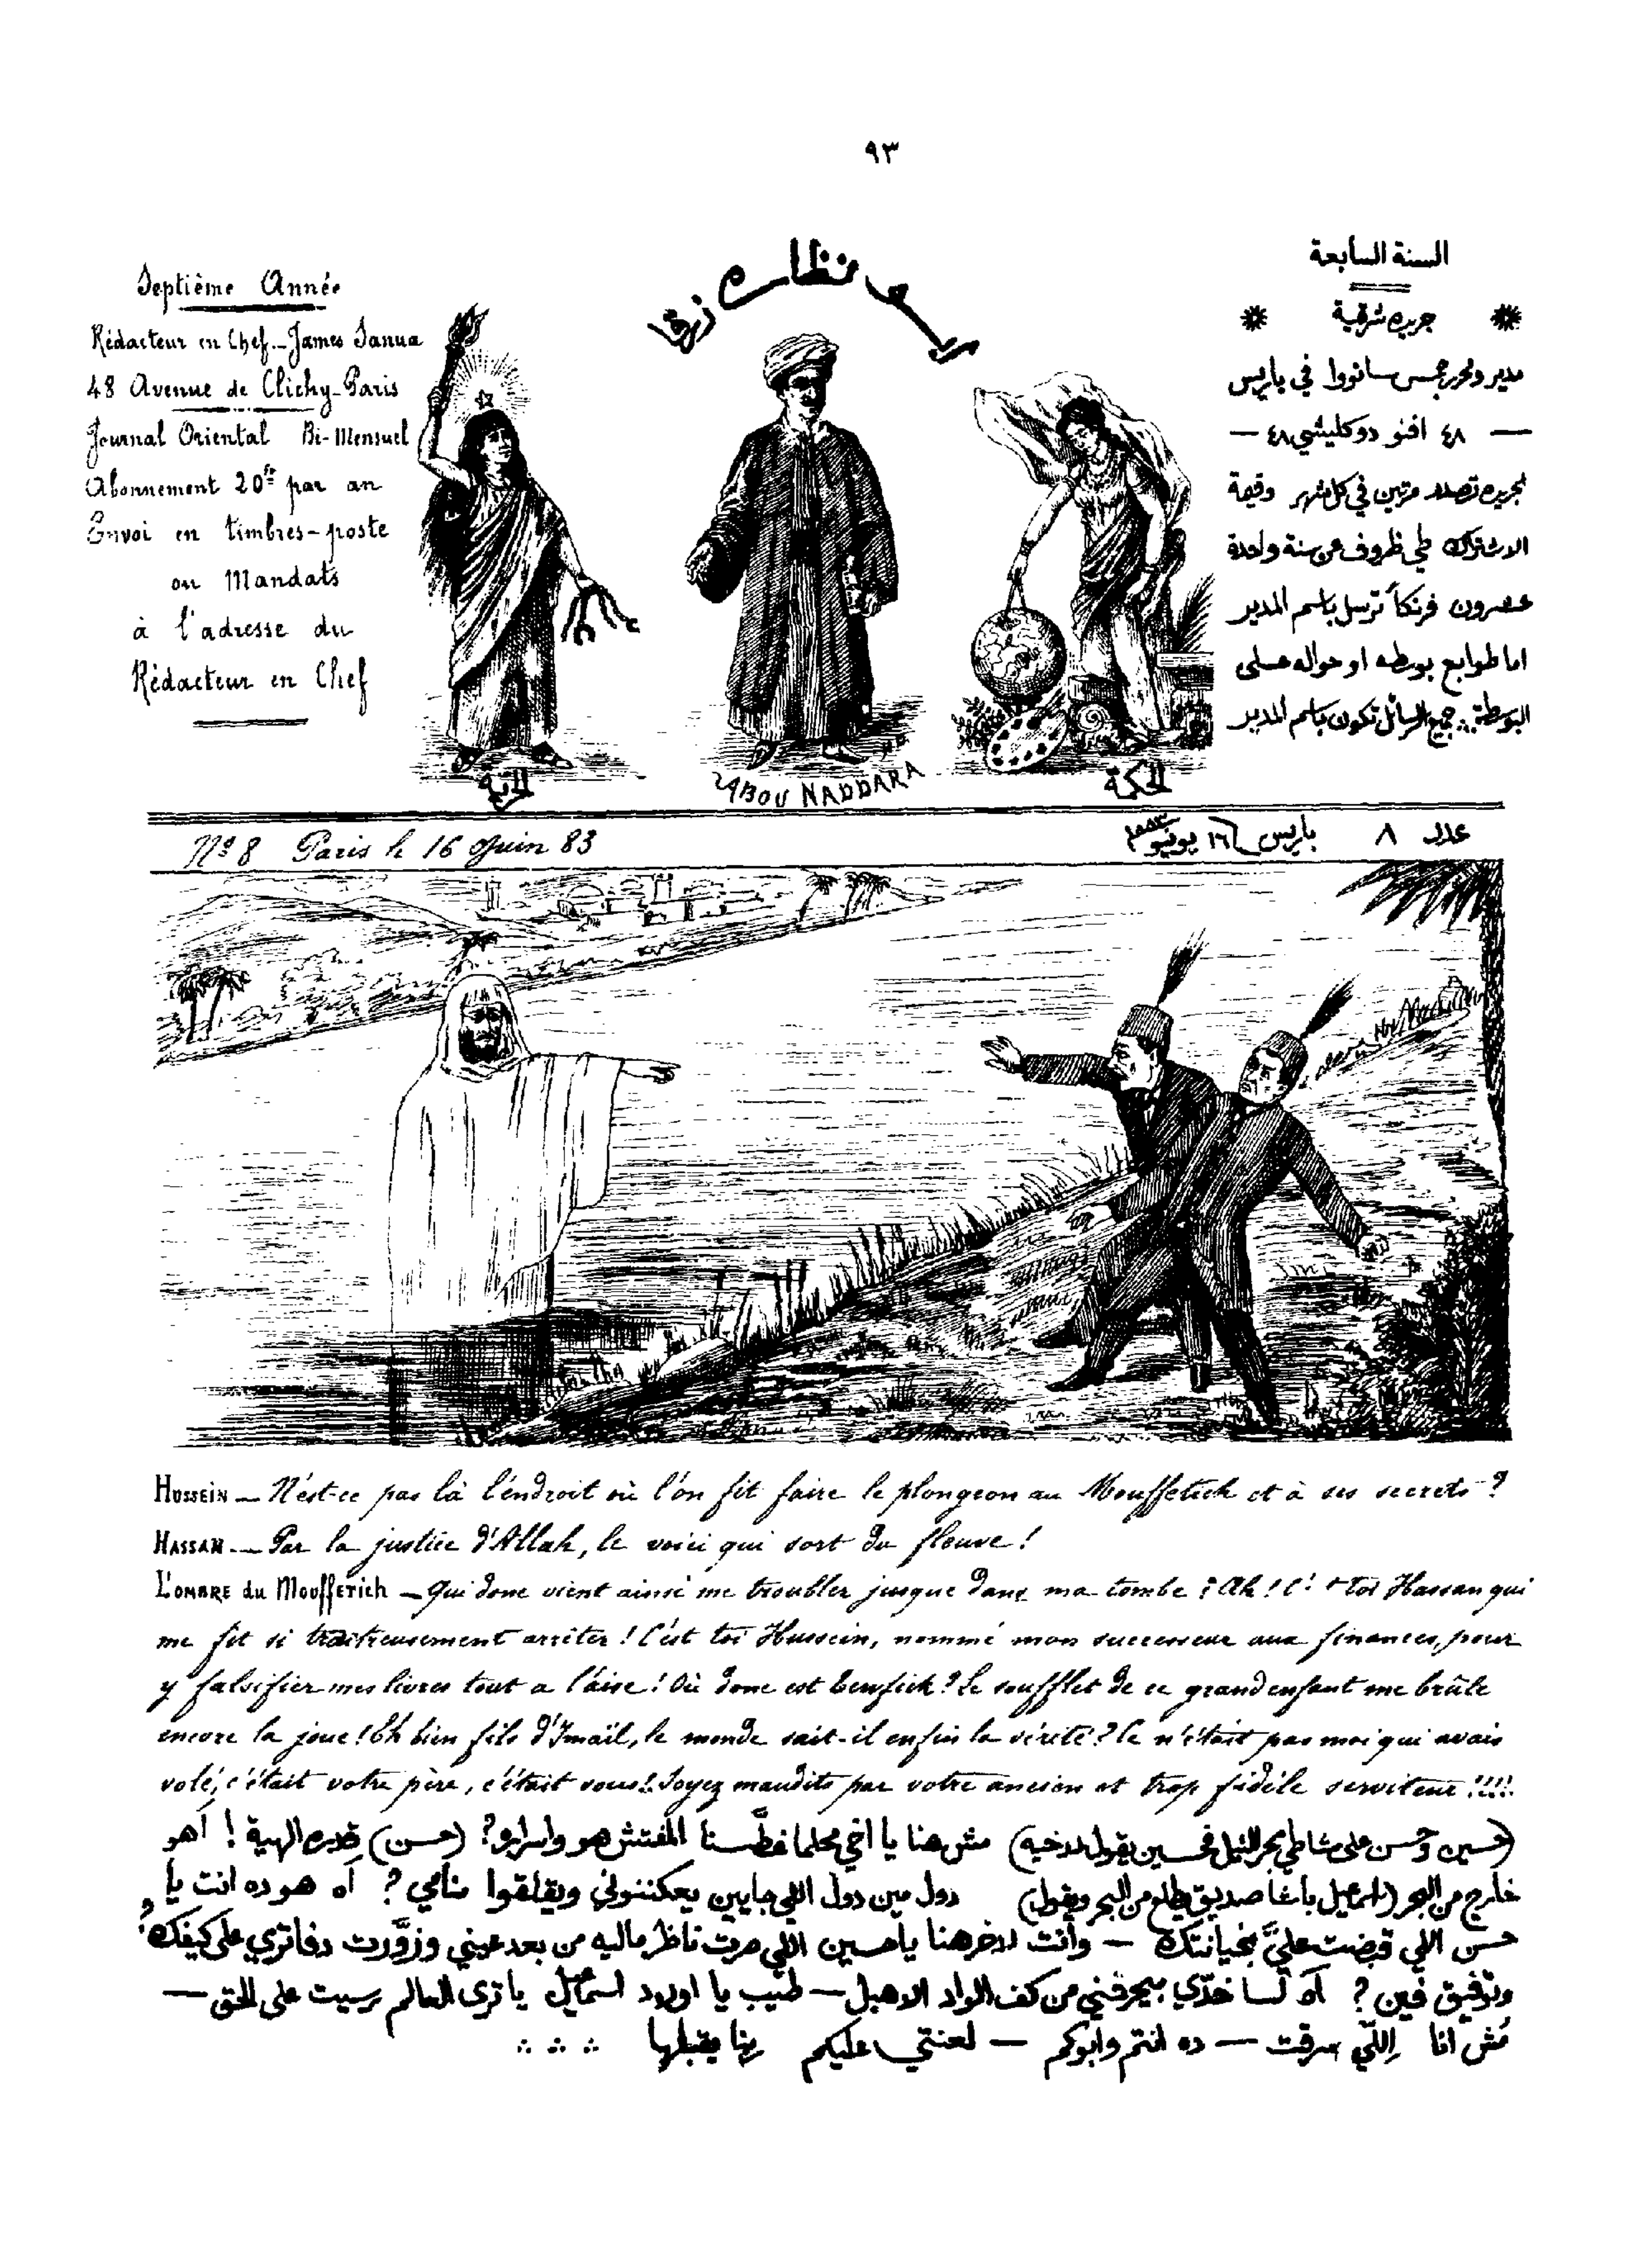 ٩٣
Septième Année
Rédacteur en Chef _ James Sanua
48 Avenue de Clichy _ Paris
Journal Oriental Bi-Mensuel
Abonnement 20fr par an
Envoi en timbres-poste
ou Mandats
à l'adresse du
Rédacteur en Chef
زرقا
نظاره
الحرية
ABOU NADDARA
الحكمة
السنة السابعة
جريده شرقية
مدير ومحرر جمس سانووا في باريس
— ٤٨ افنو دو كليشي ٤٨ —
الجريده تصدر مرتين في كل شهر وقيمة
الاشتراك طي ظروف عن سنة واحدة
عشرون فرنكاً ترسل باسم المدير
اما طوابع بوسطه او حواله على
البوسطة جميع الرسائل تكون باسم المدير
No 8 Paris le 16 Juin 83
عدد ٨ باريس ١٦ يونيو
HUSSEIN _ N'est-ce pas là l'endroit où l'on fit faire le plongeon au Mouffetich et à ses secrets ?
HASSAN _ Par la justice d'Allah, le voici qui sort du fleuve !
L'OMBRE du MOUFFETICH _ Qui donc vient ainsi me troubler jusque dans ma tombe ? Ah ! toi Hassan qui
me fit si traitreusement arrêter ! C'est toi Hussein, nommé mon successeur aux finances, pour
y falsifier mes livres tout a l'aise ! Où donc est Tewfick ? Le soufflet de ce grand enfant me brûle
encore la joue ! Eh bien fils d'Ismaïl, le monde sait-il enfin la vérité ? Ce n'était pas moi qui avais
volé, c'était votre père, c'était vous !! Soyez maudits par votre ancien et trop fidèle serviteur !!!!
(حسين وحسن على شاطي بحر النيل فحسين يقول لاخيه) مش هنا يا اخي محلما غطَّسنا المفتش هو واسراره؟ (حسن) قدره الهية ! أهو
خارج من البحر (اسمعيل باشا صديق يطلع من البحر ويقول) دول مين دول اللي جايين يعكننوني ويقلقوا منامي ? أه هو ده انت يا
حسن اللي قبضت عليَّ بخيانتك — وانت لاخر هنا ياحسين اللي صرت ناظر ماليه من بعد عيني وزوَّرت دفاتري على كيفك
وتوفيق فين ? أه لسا خدّي بيحرقني من كف الواد الاهبل — طيب يا اولاد اسمعيل يا ترى العالم رسيت على الحق —
مُش انا اِللّي سرقت — ده انتم وابوكم — لعنتي عليكم ربنا يقبلها